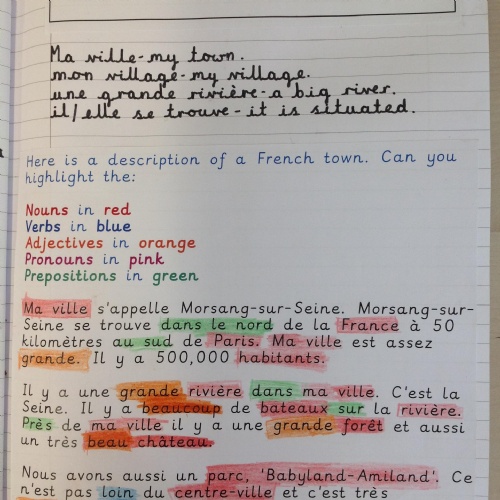 Ma ville - my town.
mon village - my village.
une grande rivière - a big river.
il/elle se trouve - it is situated.
Here is a description of a French town. Can you
highlight the:
Nouns in red
Verbs in blue
Adjectives in orange
Pronouns in pink
Prepositions in green
Ma ville s'appelle Morsang-sur-Seine. Morsang-sur-
Seine se trouve dans le nord de la France à 50
kilomètres au sud de Paris. Ma ville est assez
grande. Il y a 500,000 habitants.
Il y a une grande rivière dans ma ville. C'est la
Seine. Il y a beaucoup de bateaux sur la rivière.
Près de ma ville il y a une grande forêt et aussi
un très beau château.
Nous avons aussi un parc, 'Babyland-Amiland'. Ce
n'est pas loin du centre-ville et c'est très